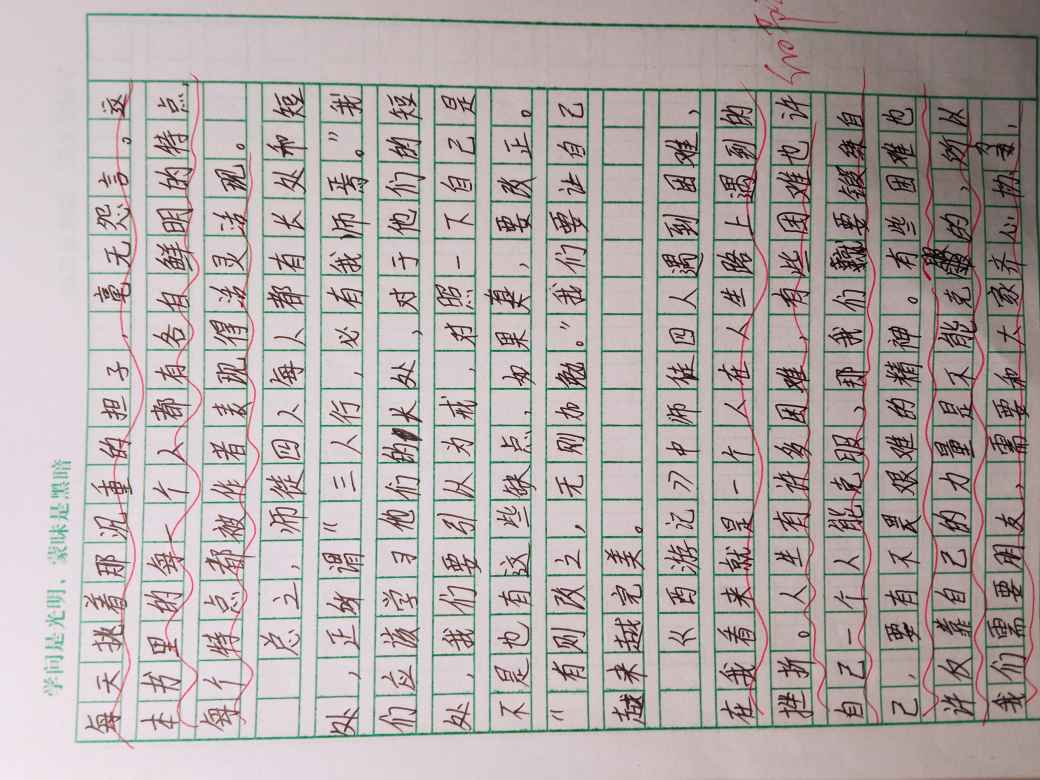 学问是光明，蒙昧是黑暗
每天挑着那沉重的担子，毫无怨言。这
本书里的每一个人都有各自鲜明的特点，
每个特点都被作者表现得活灵活现。
总之，师徒四人每人都有长处和短
处，正所谓“三人行，必有我师焉。”我
们应该学习他们的长处，对于他们的短
处，我们要引以为戒，对照一下自己是
不是也有这些缺点，如果真，要改正。
“有则改之，无则加勉。”我们要让自己
越来越完美。
《西游记》中师徒四人遇到困难，
在我看来就是一个人在人生路上遇到的
挫折。人生有许多困难，有些困难也许
自己一个人能克服，那我们就要锻炼自
己，要有不畏艰难的精神。有些困难也
许仅靠自己的力量是不能克服的，所以
我们需要朋友，需要和大家齐心协力，